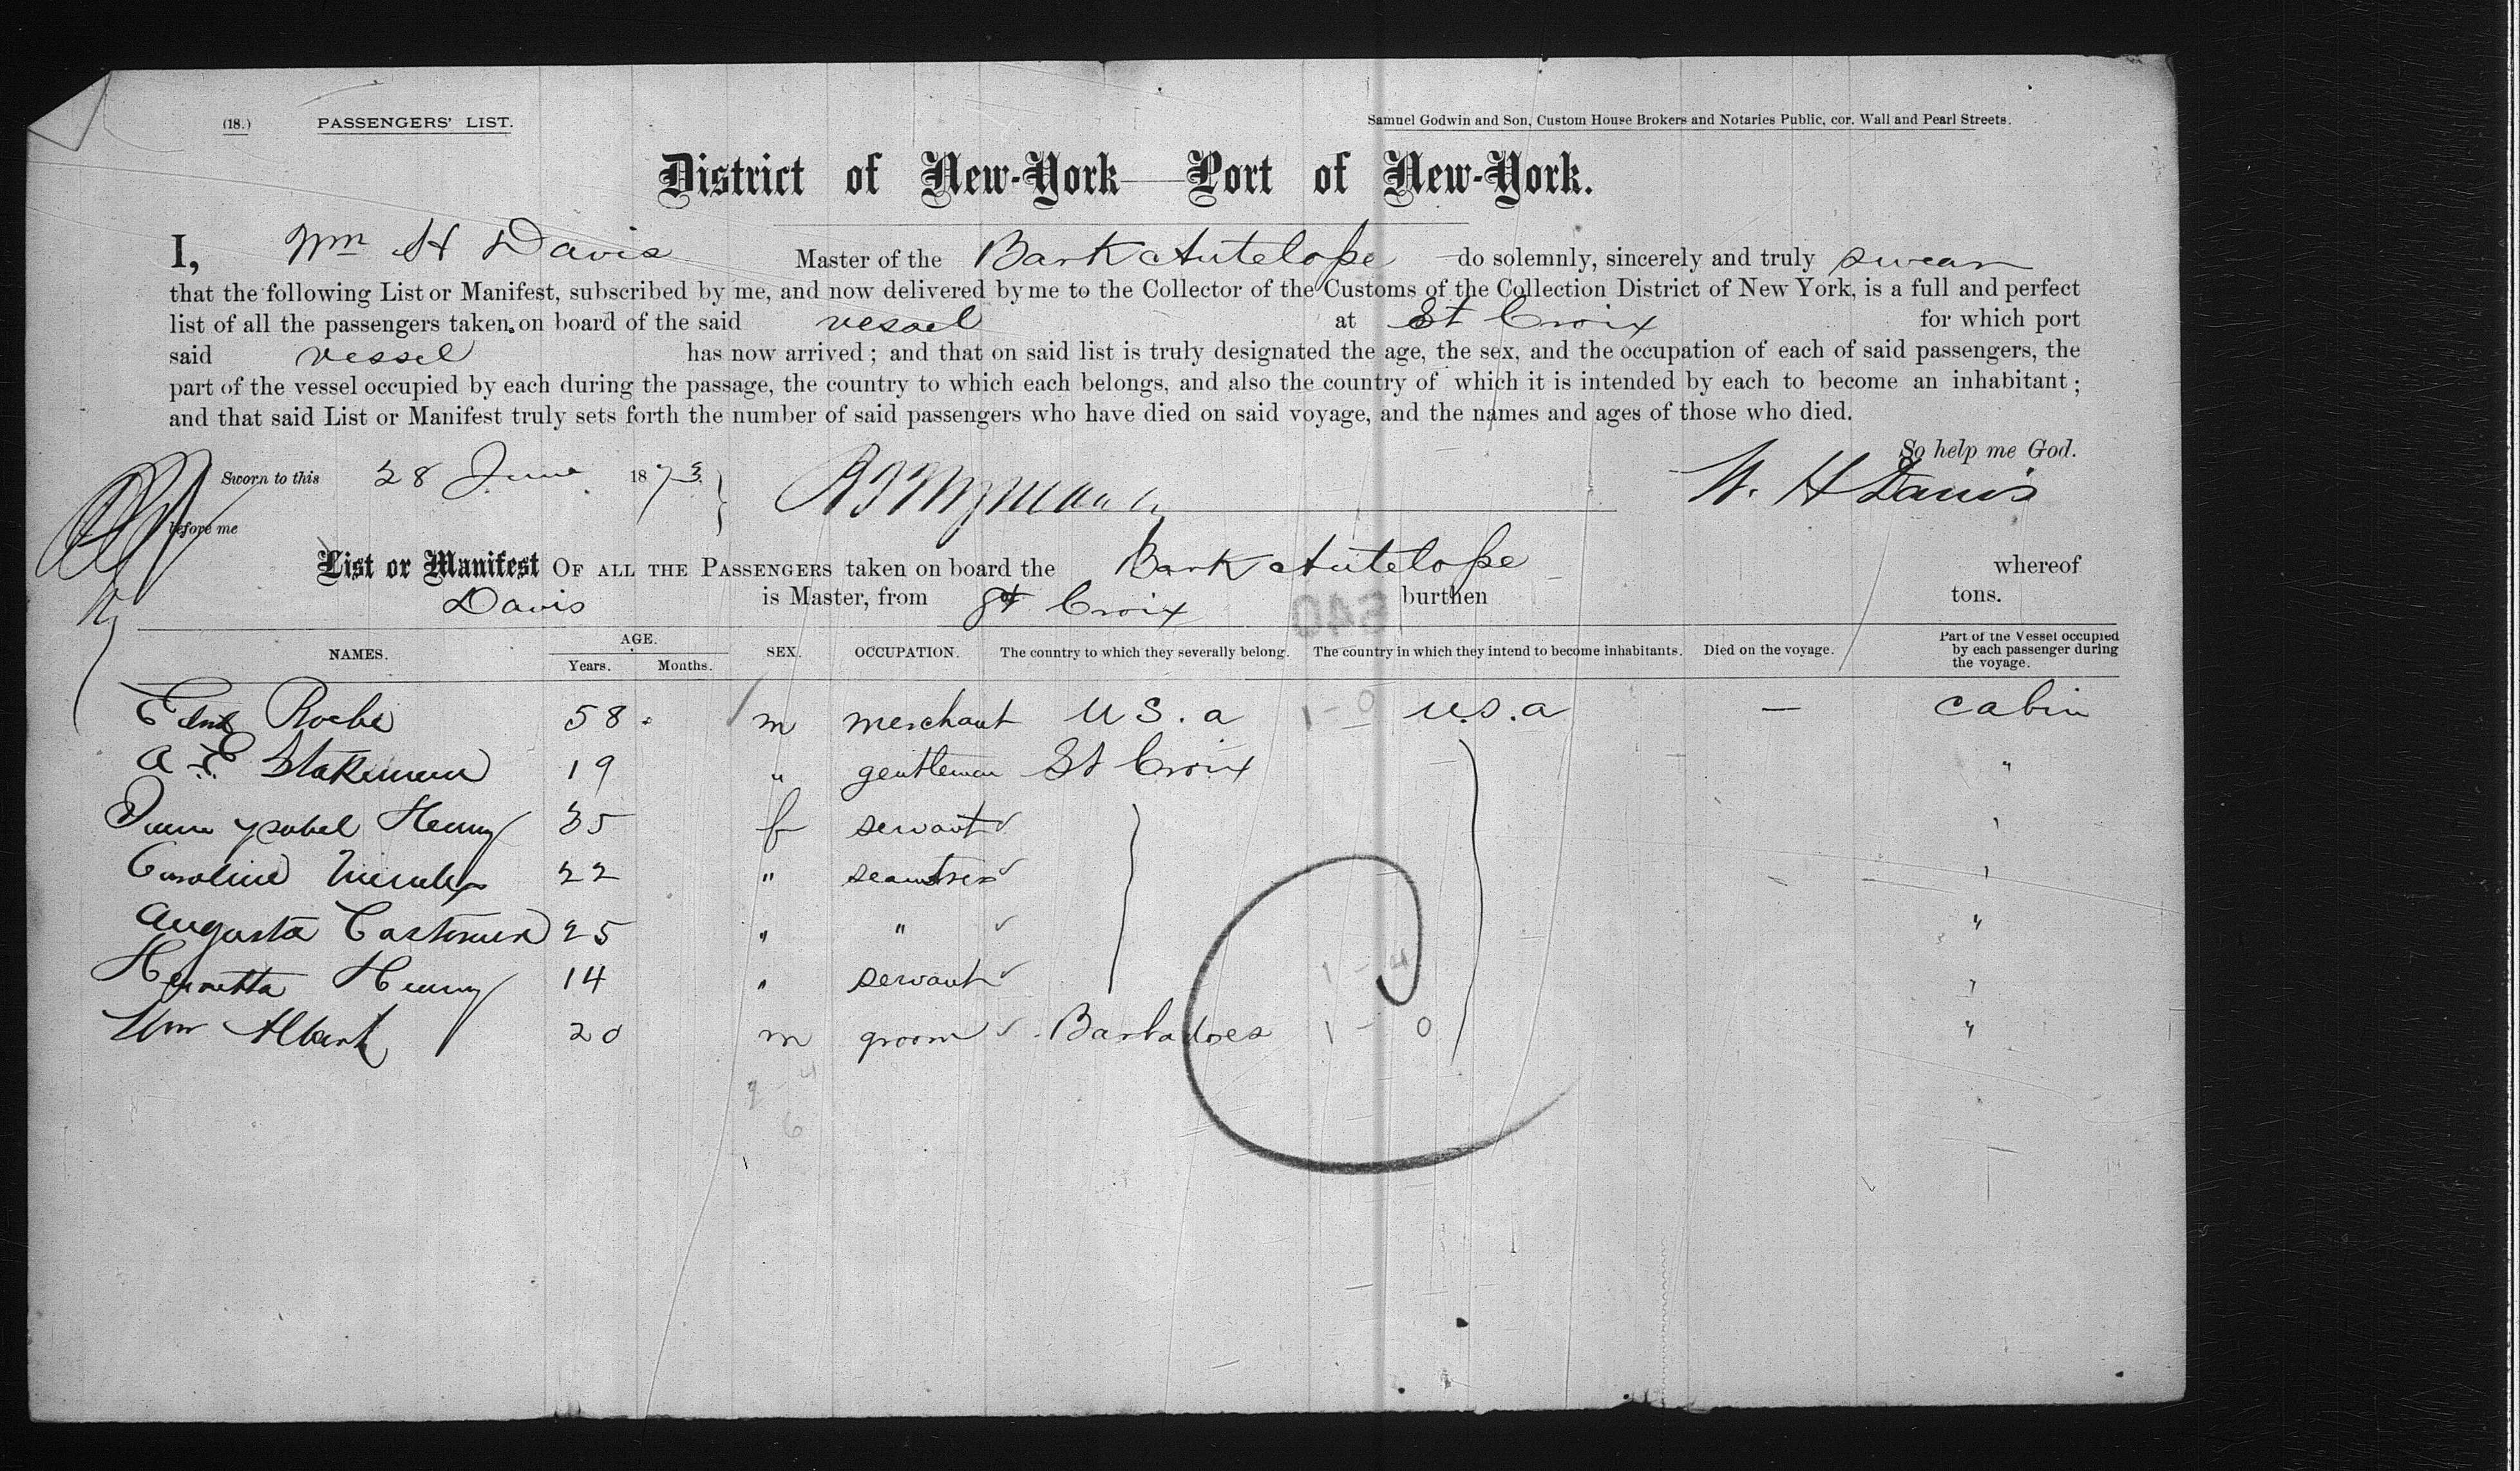 (18.) PASSENGERS' LIST. Samuel Godwin and Son, Custom House Brokers and Notaries Public, cor. Wall and Pearl Streets.
District of New-York—Port of New-York.
I, Wm H Davis Master of the Bark Antelope do solemnly, sincerely and truly swear
that the following List or Manifest, subscribed by me, and now delivered by me to the Collector of the Customs of the Collection District of New York, is a full and perfect
list of all the passengers taken on board of the said vessel at St Croix for which port
said vessel has now arrived; and that on said list is truly designated the age, the sex, and the occupation of each of said passengers, the
part of the vessel occupied by each during the passage, the country to which each belongs, and also the country of which it is intended by each to become an inhabitant;
and that said List or Manifest truly sets forth the number of said passengers who have died on said voyage, and the names and ages of those who died.
So help me God.
Sworn to this 28 June 1873 W. H Davis
before me
List or Manifest OF ALL THE PASSENGERS taken on board the Bark Antelope whereof
Davis is Master, from St Croix burthen tons.
640
NAMES. AGE. Years. Months. SEX. OCCUPATION. The country to which they severally belong. The country in which they intend to become inhabitants. Died on the voyage. Part of the Vessel occupied by each passenger during the voyage.
58 m merchant U S. a 1 - 0 U.S.a — cabin
A E Stakemann 19 " gentleman St Croix "
Ysabel Henry 35 f servant
Caroline 22 " seamtress
Augusta 25 " " "
Henrietta Henry 14 " servant 1 - 4 "
Wm Albert 20 m groom Barbadoes 1 - 0 "
2 - 4
6